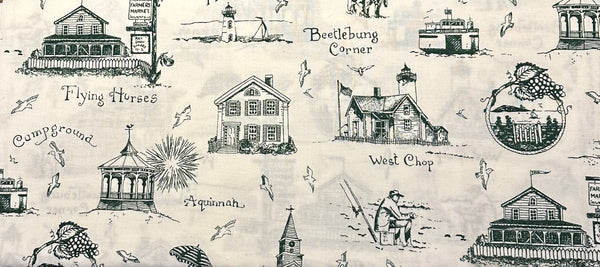 FARMERS
MARKET
Beetlebung
Corner
Flying Horses
Campground
West Chop
Aquinnah
FARMERS
MARKET